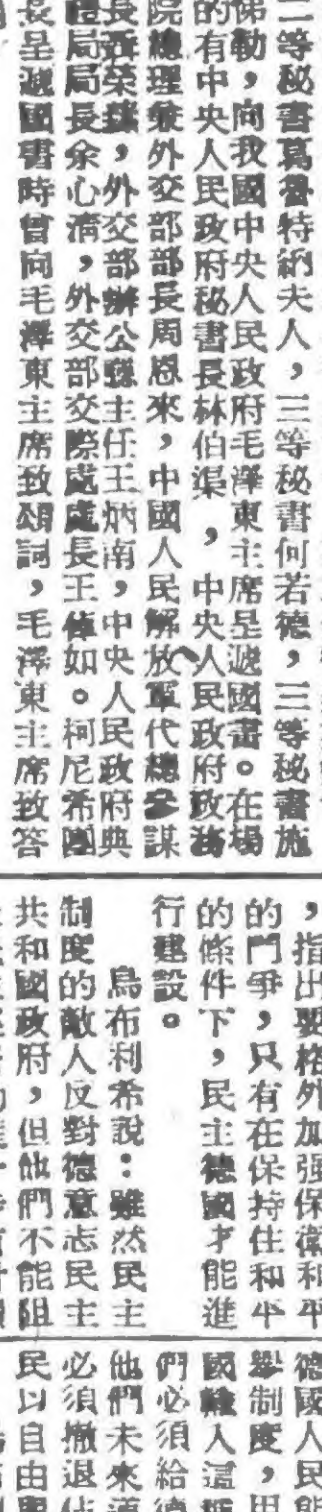 二等秘書葛魯特納夫人，三等秘書何若德，三等秘書施
佛勒，向我國中央人民政府毛澤東主席呈遞國書。在場
的有中央人民政府秘書長林伯渠，中央人民政府政務
院總理兼外交部部長周恩來，中國人民解放軍代總參謀
長聶榮臻，外交部辦公廳主任王炳南，中央人民政府典
禮局局長余心清，外交部交際處處長王倬如。柯尼希團
長呈遞國書時曾向毛澤東主席致頌詞，毛澤東主席致答
，指出要格外加强保衛和平
的鬥爭，只有在保持住和平
的條件下，民主德國才能進
行建設。
烏布利希說：雖然民主
制度的敵人反對德意志民主
共和國政府，但他們不能阻
德國人民能
舉制度，用
國輸入這
們必須給德
他們未來
必須撤退
民以自由